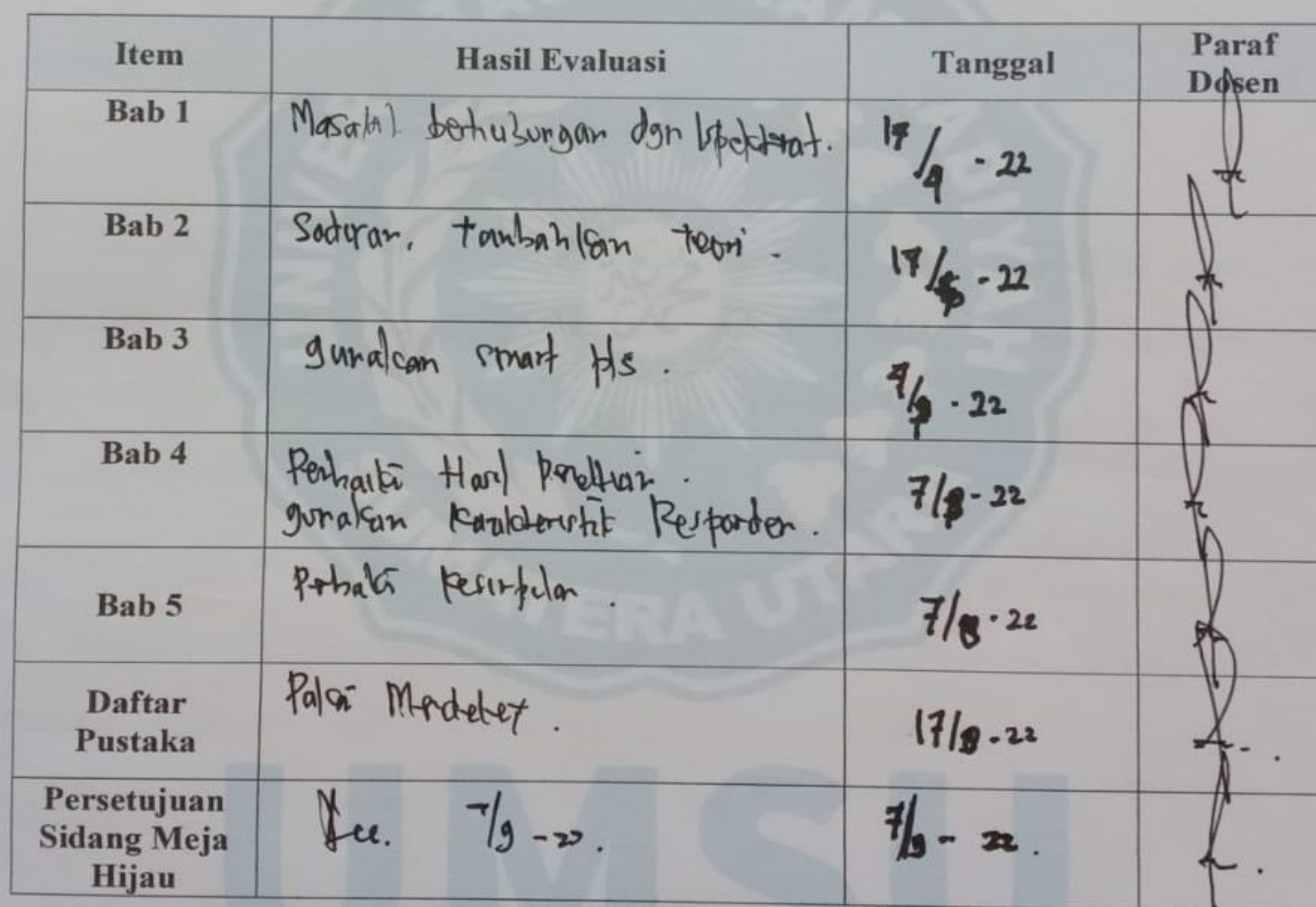 Item Hasil Evaluasi Tanggal Paraf
Dosen
Bab 1 Masalah berhubungan dgn 17/4 - 22
Bab 2 Saduran, tambahkan teori. 17/5 - 22
Bab 3 gunakan smart pls. - 22
Bab 4 Perbaiki Hasil penelitian. 7/8 - 22
gunakan Karakteristik Responden.
Bab 5 Perbaiki Kesimpulan. 7/8 - 22
Daftar
Pustaka Pakai Mendeley. 17/8 - 22
Persetujuan
Sidang Meja
Hijau Acc. 7/9 - 22. 7/9 - 22.
UMSU